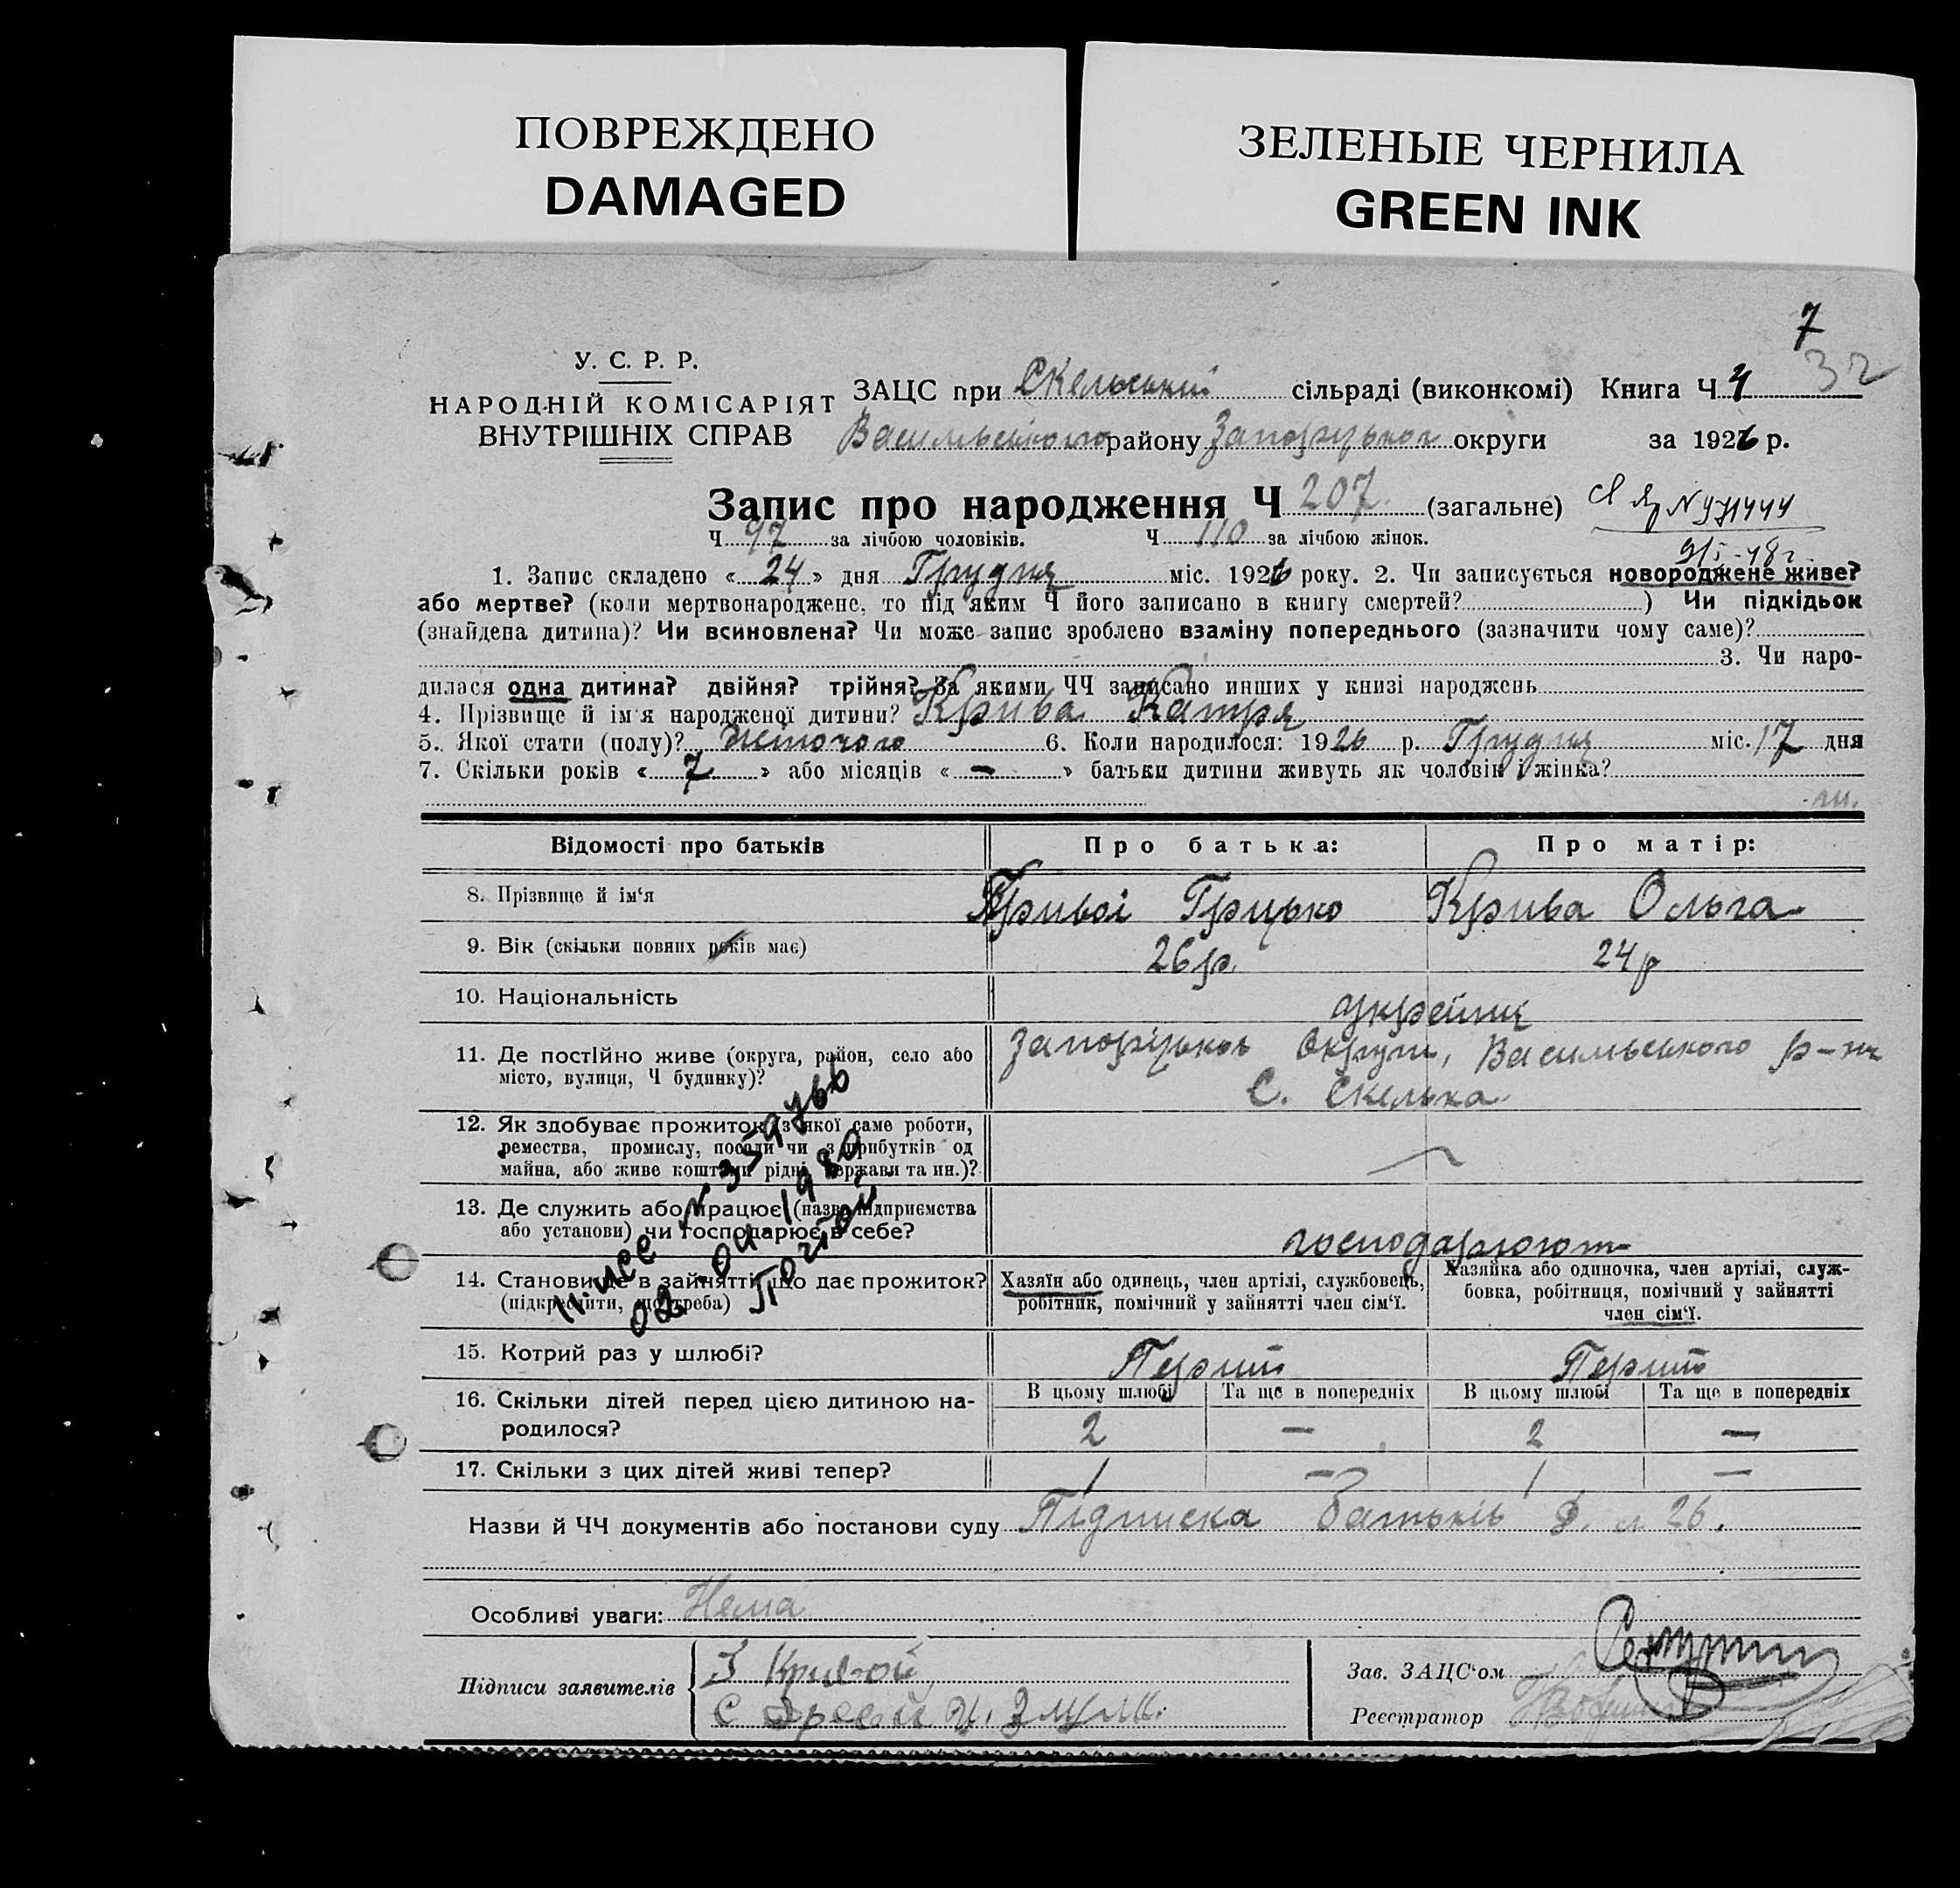 ПОВРЕЖДЕНО
DAMAGED
ЗЕЛЕНЫЕ ЧЕРНИЛА
GREEN INK
7
32
У. С. Р. Р.
НАРОДНІЙ КОМІСАРІЯТ
ВНУТРІШНІХ СПРАВ
ЗАЦС при Скельський сільраді (виконкомі) Книга Ч 4
Васильвського району Запоріцької округи за 1926 р.
Запис про народження Ч 207 (загальне)
Ч 97 за лічбою чоловіків. Ч 110 за лічбою жінок.
1. Запис складено « 24 » дня Грудня міс. 1926 року. 2. Чи записується новороджене живе?
або мертве? (коли мертвонароджене, то під яким Ч його записано в книгу смертей? ) Чи підкідьок
(знайдена дитина)? Чи всиновлена? Чи може запис зроблено взаміну попереднього (зазначити чому саме)?
3. Чи наро-
дилася одна дитина? двійня? трійня? За якими ЧЧ записано инших у книзі народжень
4. Прізвище й ім'я народженої дитини? Крива Катря
5. Якої стати (полу)? Жіночого 6. Коли народилося: 1926 р. Грудня міс. 17 дня
7. Скільки років « 7 » або місяців « — » батьки дитини живуть як чоловік і жінка?
Відомості про батьків Про батька: Про матір:
8. Прізвище й ім'я Кривой Грицько Крива Ольга
9. Вік (скільки повних років має) 26 р. 24 р
10. Національність украйнці
11. Де постійно живе (округа, район, село або Запоріцької Округи, Васильвського р-на
місто, вулиця, Ч будинку)? С. Скелька
12. Як здобуває прожиток (з якої саме роботи,
ремества, промислу, посади чи з прибутків од
майна, або живе коштами рідні, держави та ин.)?
13. Де служить або працює (назва підприємства
або установи) чи господарює в себе? господарюют
14. Становище в зайнятті, що дає прожиток?
(підкреслити, що треба)
Хазяїн або одинець, член артілі, службовець,
робітник, помічний у зайнятті член сім'ї.
Хазяйка або одиночка, член артілі, служ-
бовка, робітниця, помічний у зайнятті
член сім'ї.
15. Котрий раз у шлюбі? Перший Перший
В цьому шлюбі Та ще в попередніх В цьому шлюбі Та ще в попередніх
16. Скільки дітей перед цією дитиною на-
родилося? 2 — 2 —
17. Скільки з цих дітей живі тепер? 1 — 1 —
Назви й ЧЧ документів або постанови суду Підписка Батьків
Особливі уваги: Нема
Підписи заявителів Кривой
Зав. ЗАЦС'ом
Реєстратор